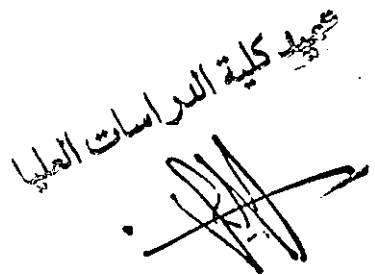 عميد كلية الدراسات العليا